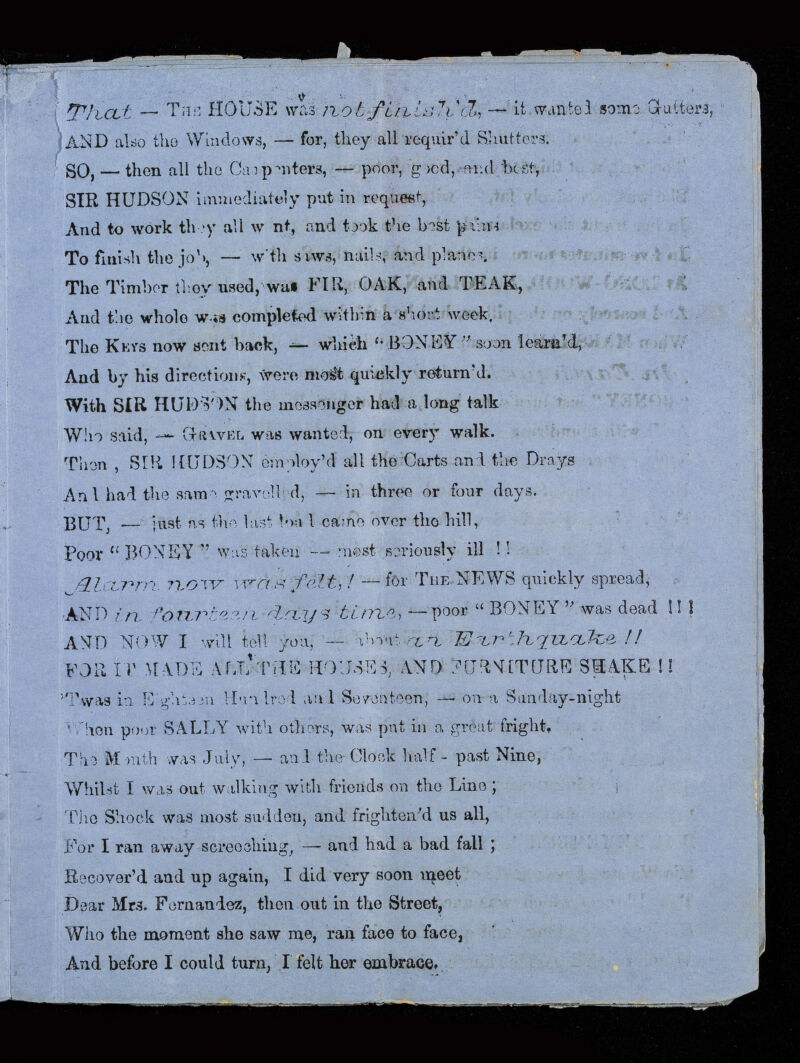 That — THE HOUSE was not finish'd, — it wanted some Gutters,
AND also the Windows, — for, they all requir'd Shutters.
SO, — then all the Carpenters, — poor, good, and best,
SIR HUDSON immediately put in request,
And to work they all went, and took the best pains
To finish the job, — with saws, nails, and planes.
The Timber they used, was FIR, OAK, and TEAK,
And the whole was completed within a short week.
The KEYS now sent back, — which “BONEY” soon learn'd,
And by his directions, were most quickly return'd.
With SIR HUDSON the messenger had a long talk
Who said, — GRAVEL was wanted, on every walk.
Then , SIR HUDSON employ'd all the Carts and the Drays
And had the same gravelled, — in three or four days.
BUT, — just as the last load came over the hill,
Poor “BONEY” was taken — most seriously ill !!
Alarm now was felt, ! — for THE NEWS quickly spread,
AND in fourteen days time, — poor “BONEY” was dead !!!
AND NOW I will tell you, — about an Earthquake !!
FOR IT MADE ALL THE HOUSES, AND FURNITURE SHAKE !!
'Twas in Eighteen Hundred and Seventeen, — on a Sunday-night
When poor SALLY with others, was put in a great fright,
The Month was July, — and the Clock half - past Nine,
Whilst I was out walking with friends on the Line ;
The Shock was most sudden, and frighten'd us all,
For I ran away screeching, — and had a bad fall ;
Recover'd and up again, I did very soon meet
Dear Mrs. Fernandez, then out in the Street,
Who the moment she saw me, ran face to face,
And before I could turn, I felt her embrace.